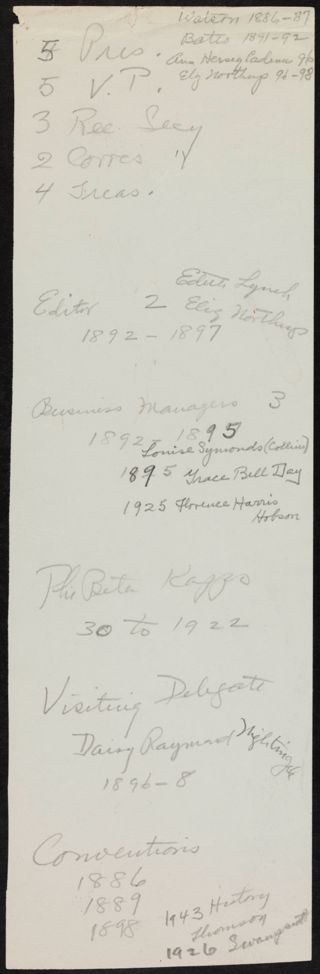 Watson 1886-87
Batts 1891-92
5 Pres.
Ann Hersey Cadmus 96
5 V.P.
Eliz Northup 96-98
3 Rec. Secy
2 Corres "
4 Treas.
Editor 2 Edith Lynch
Eliz Northup
1892 - 1897
Business Managers 3
1892 - 1895
Louise Symonds (Collins)
1895 Grace Bell Day
1925 Florence Harris
Hobson
Phi Beta Kappa
30 to 1922
Visiting Delegate
Daisy Raymond Nightingale
1896-8
Conventions
1886
1889
1898
1943 History
Thomson
1926